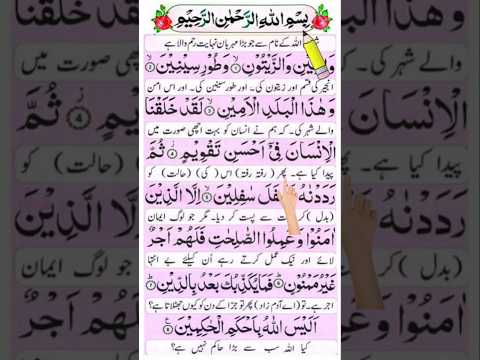 بِسْمِ اللهِ الرَّحْمٰنِ الرَّحِيْمِ
اللہ کے نام سے جو بڑا مہربان نہایت رحم والا ہے
وَالزَّيْتُوْنِ ۙ﴿۱﴾ وَطُوْرِ سِيْنِيْنَ ۙ﴿۲﴾
انجیر کی قسم اور زیتون کی۔ اور طور سینین کی۔ اور اس امن
وَهٰذَا الْبَلَدِ الْاَمِيْنِ ۙ﴿۳﴾ لَقَدْ خَلَقْنَا
والے شہر کی۔ کہ ہم نے انسان کو بہت اچھی صورت میں
الْاِنْسَانَ فِيْٓ اَحْسَنِ تَقْوِيْمٍ ۫﴿۴﴾ ثُمَّ
پیدا کیا ہے۔ پھر (رفتہ رفتہ) اس (کی) (حالت) کو
رَدَدْنٰهُ سٰفِلِيْنَ ۙ﴿۵﴾ اِلَّا الَّذِيْنَ
(بدل) کر سے پست کر دیا۔ مگر جو لوگ ایمان
اٰمَنُوْا وَعَمِلُوا الصّٰلِحٰتِ فَلَهُمْ اَجْرٌ
لائے اور نیک عمل کرتے رہے اُن کیلئے بے انتہا
غَيْرُ مَمْنُوْنٍ ﴿۶﴾ فَمَا يُكَذِّبُكَ بَعْدُ بِالدِّيْنِ ﴿۷﴾
اجر ہے۔ تو (اے آدم زاد) پھر تو جزا کے دن کو کیوں جھٹلاتا ہے؟
اَلَيْسَ اللهُ بِاَحْكَمِ الْحٰكِمِيْنَ ﴿۸﴾
کیا اللہ سب سے بڑا حاکم نہیں ہے؟